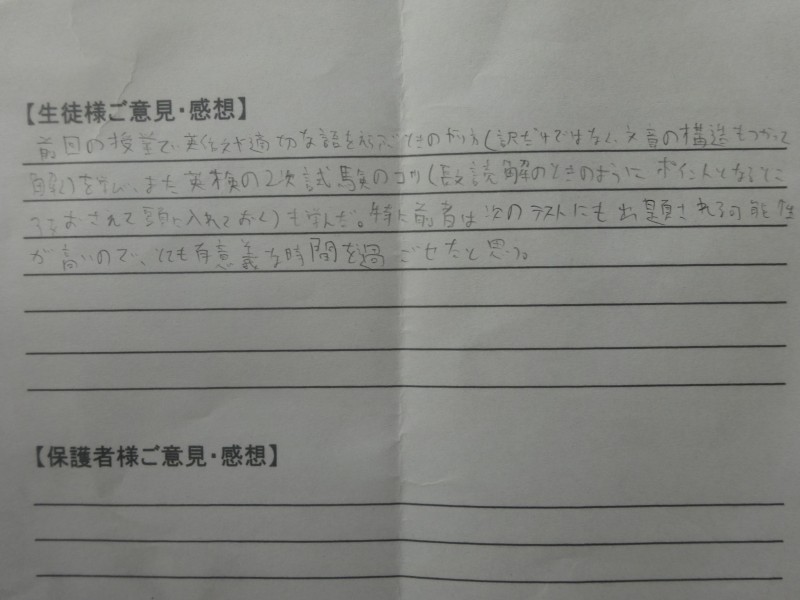 【生徒様ご意見・感想】
前回の授業で、英伝文や適切な語をえらぶときのやり方(訳だけではなく、文章の構造をつかって
解く)を学び、また英検の2次試験のコツ(長文読解のときのように ポイントとなるとこ
ろをおさえて頭に入れておく)も学んだ。特に前者は次のテストにも出題される可能性
が高いので、とても有意義な時間を過ごせたと思う。
【保護者様ご意見・感想】